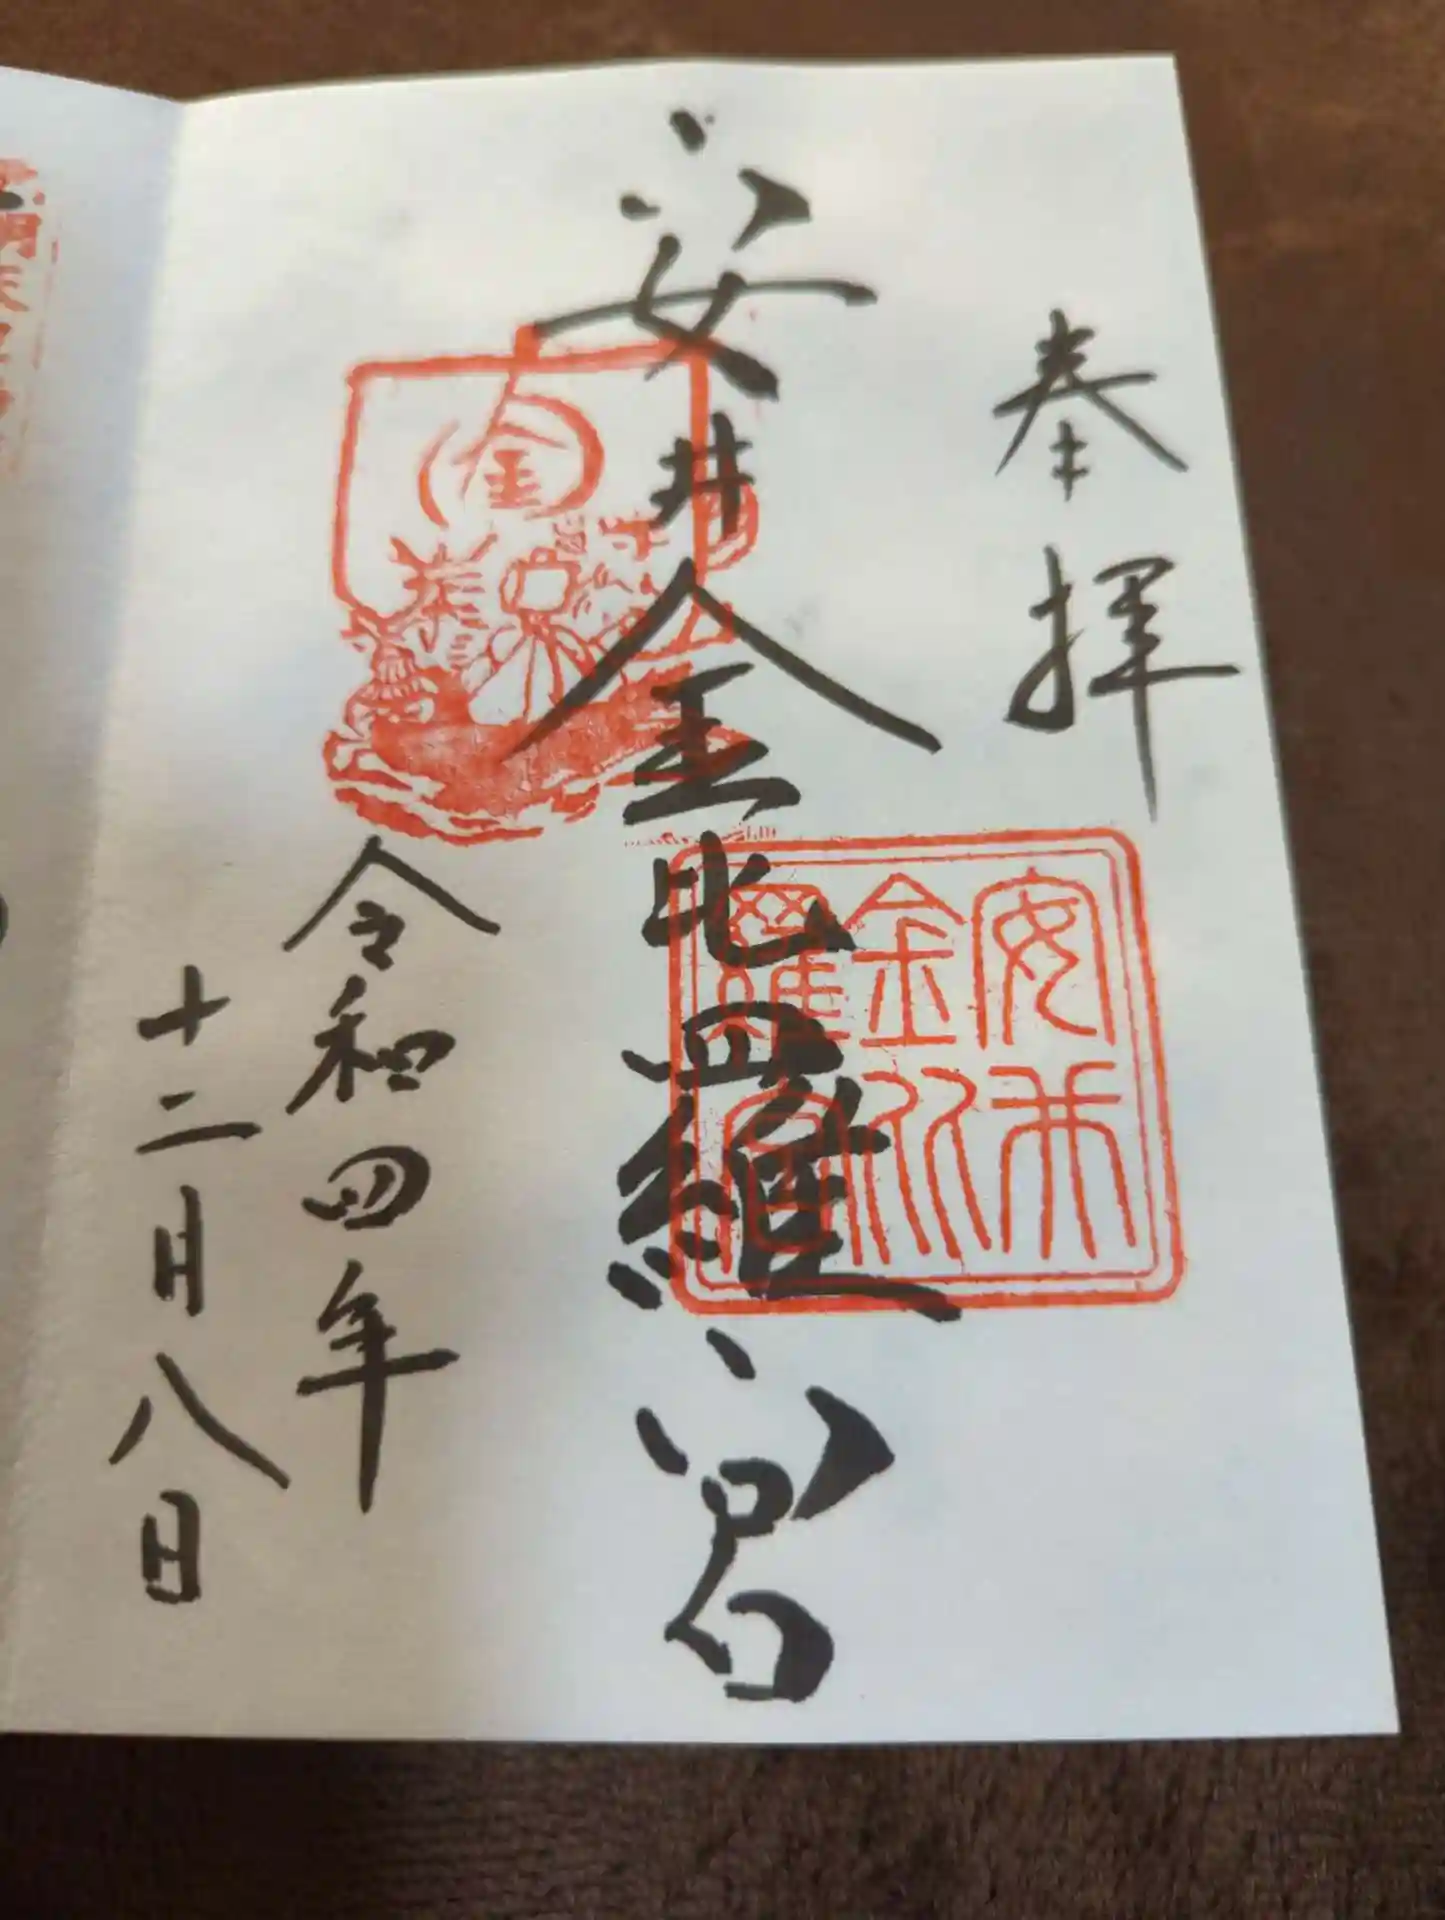 奉拝
安井金比羅宮
安井
金比
羅宮
金
令和四年
十二月八日